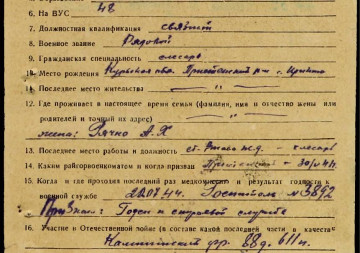 6. На ВУС 48
7. Должностная квалификация связной
8. Военное звание Рядовой
9. Гражданская специальность слесарь
10. Место рождения Курская обл.
11. Последнее место жительства —„— —„—
12. Где проживает в настоящее время семья (фамилия, имя и отчество жены или
родителей и точный их адрес)
жена: А. Х
13. Последнее место работы и должность ст. Ржава ж.д. — слесарь
14. Каким райгорвоенкоматом и когда призван
15. Когда и где проходил последний раз медкомиссию и результат годности к
военной службе 22.07.44. Госпиталь № 3892
Признан: Годен к строевой службе
16. Участие в Отечественной войне (в составе какой последней части и в качестве
фр. 88д. 611п.